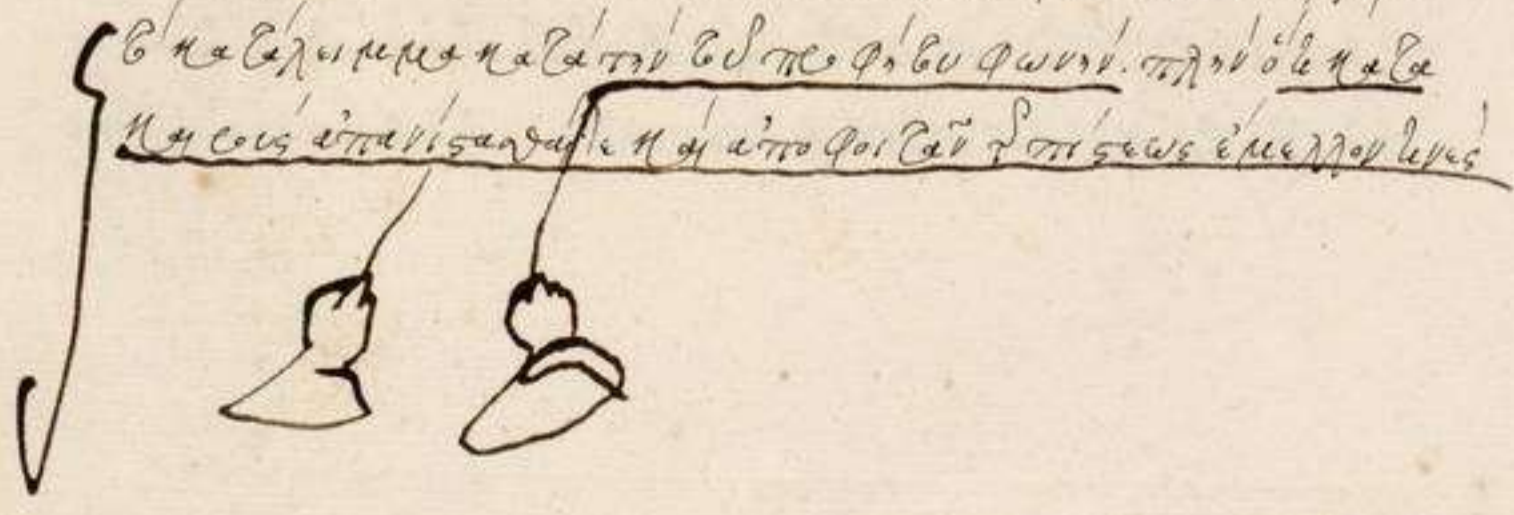 τὸ κατάλειμμα κατὰ τὴν τοῦ προφήτου φωνήν. πλὴν ὅτι κατὰ
καιροὺς ἀπανίστασθαί τε καὶ ἀποφοιτᾶν τῆς πίστεως ἔμελλόν τινες